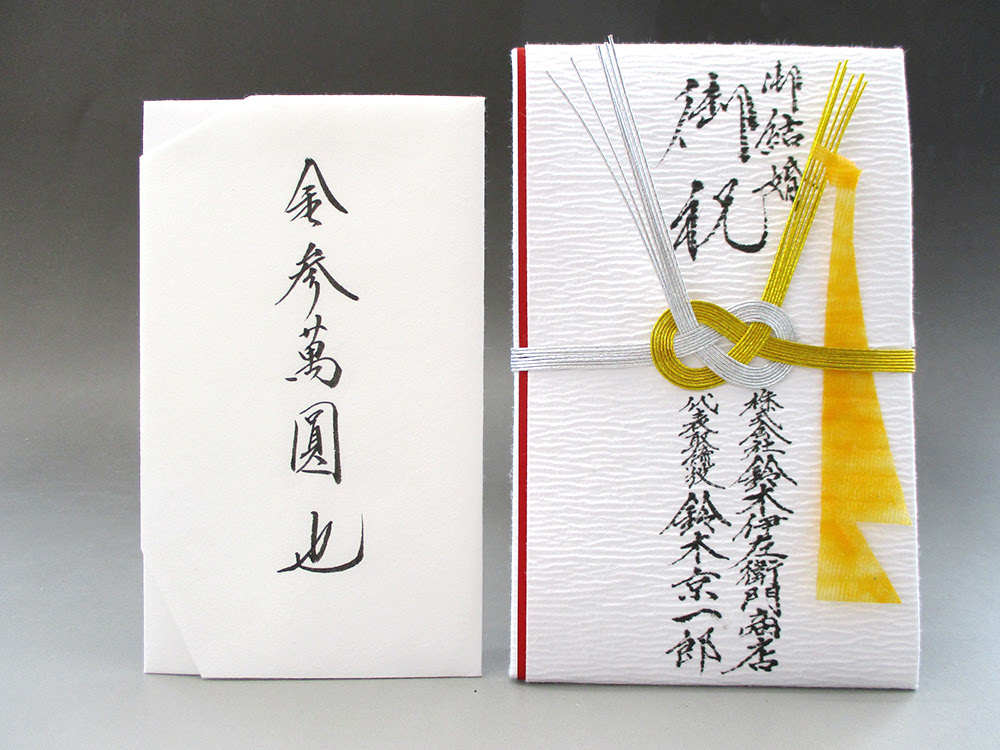 金参萬圓也
御結婚
御祝
株式会社鈴木伊左衛門商店
代表取締役 鈴木京一郎